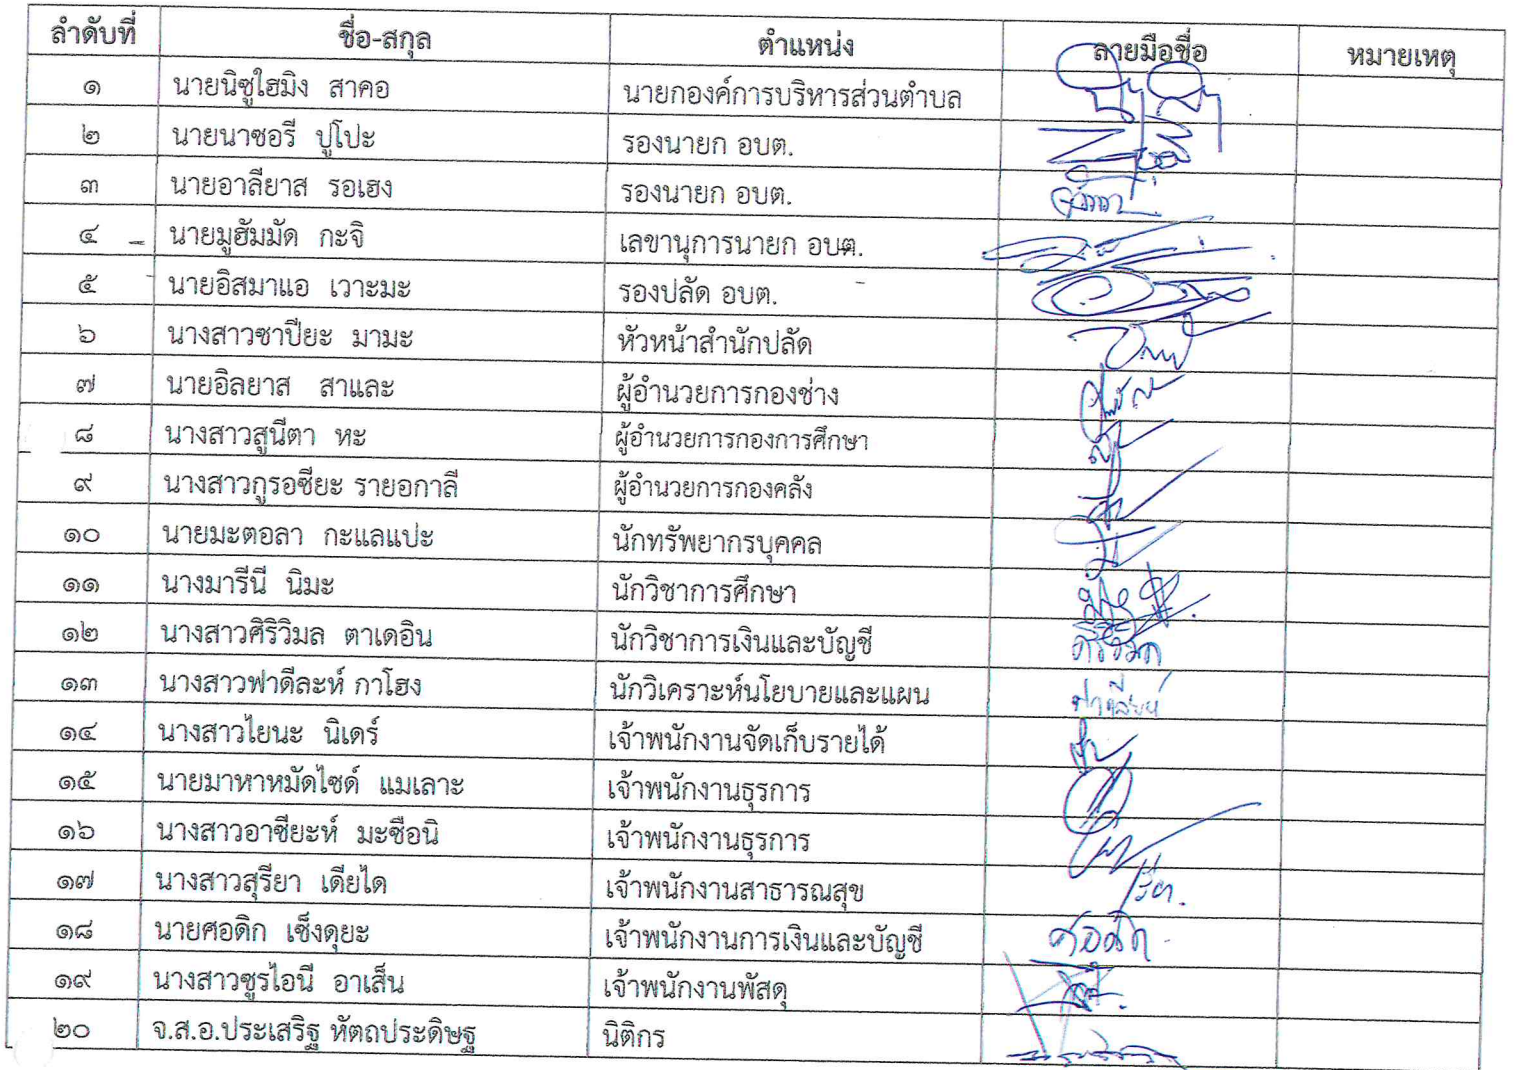 ลำดับที่ ชื่อ-สกุล ตำแหน่ง ลายมือชื่อ หมายเหตุ
๑ นายนิซูไฮมิง สาคอ นายกองค์การบริหารส่วนตำบล
๒ นายนาซอรี ปูโปะ รองนายก อบต.
๓ นายอาลียาส รอเฮง รองนายก อบต.
๔ นายมูฮัมมัด กะจิ เลขานุการนายก อบต.
๕ นายอิสมาแอ เวาะมะ รองปลัด อบต.
๖ นางสาวซาปียะ มามะ หัวหน้าสำนักปลัด
๗ นายอิลยาส สาและ ผู้อำนวยการกองช่าง
๘ นางสาวสูนีตา หะ ผู้อำนวยการกองการศึกษา
๙ นางสาวกูรอซียะ รายอกาลี ผู้อำนวยการกองคลัง
๑๐ นายมะตอลา กะแลแปะ นักทรัพยากรบุคคล
๑๑ นางมารีนี นิมะ นักวิชาการศึกษา
๑๒ นางสาวศิริวิมล ตาเดอิน นักวิชาการเงินและบัญชี ศิริวิมล
๑๓ นางสาวฟาดีละห์ กาโฮง นักวิเคราะห์นโยบายและแผน ฟาดีละห์
๑๔ นางสาวไยนะ นิเดร์ เจ้าพนักงานจัดเก็บรายได้
๑๕ นายมาหาหมัดไซด์ แมเลาะ เจ้าพนักงานธุรการ
๑๖ นางสาวอาซียะห์ มะซือนิ เจ้าพนักงานธุรการ
๑๗ นางสาวสุรียา เดียได เจ้าพนักงานสาธารณสุข
๑๘ นายศอดิก เซ็งดุยะ เจ้าพนักงานการเงินและบัญชี ศอดิก
๑๙ นางสาวซูรไอนี อาเส็น เจ้าพนักงานพัสดุ
๒๐ จ.ส.อ.ประเสริฐ หัตถประดิษฐ นิติกร